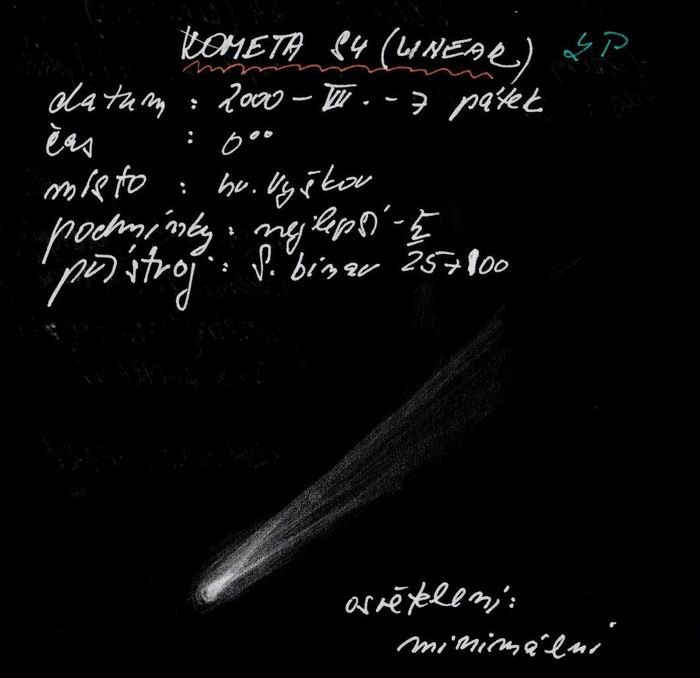 KOMETA S4 (LINEAR)
datum : 2000 - VII. - 7 pátek
čas : 0⁰⁰
místo : hv. Vyškov
podmínky : nejlepší - I
přístroj : S. binar 25+100
osvětlení :
minimální